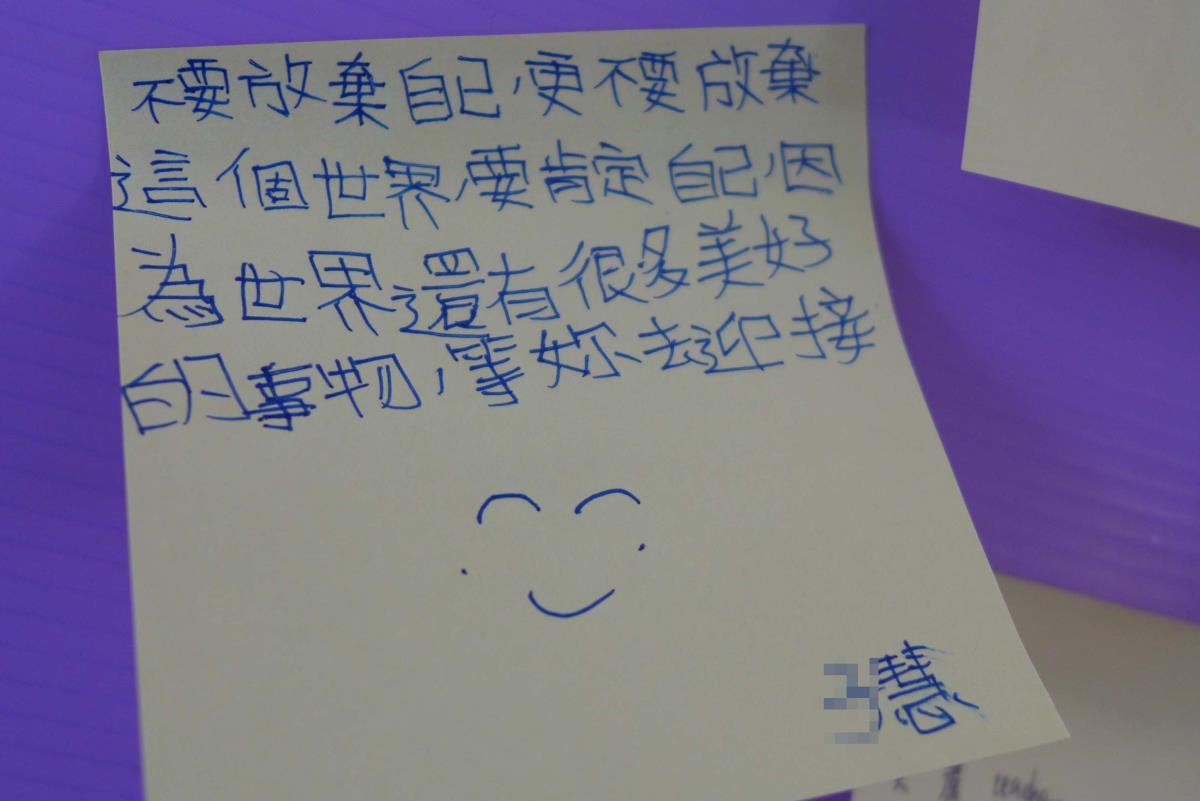 不要放棄自己,更不要放棄
這個世界,要肯定自己,因
為世界還有很多美好
的事物,等妳去迎接
慧